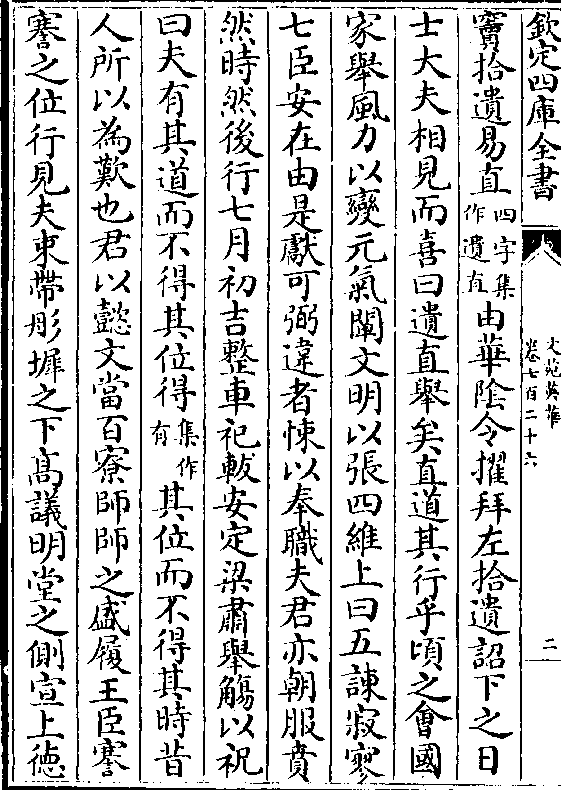 欽定四庫全書
文苑英華
卷七百二十六
二
竇拾遺易直四字集作遺直由華陰令擢拜左拾遺詔下之日
士大夫相見而喜曰遺直舉矣直道其行乎頃之會國
家舉風力以變元氣闡文明以張四維上曰五諫寂寥
七臣安在由是獻可弼違者悚以奉職夫君亦朝服賁
然時然後行七月初吉整車祀軷安定梁肅舉觴以祝
曰夫有其道而不得其位得集作有其位而不得其時昔
人所以為歎也君以懿文當百寮師師之盛履王臣蹇
蹇之位行見夫束帶彤墀之下髙議明堂之側宣上徳